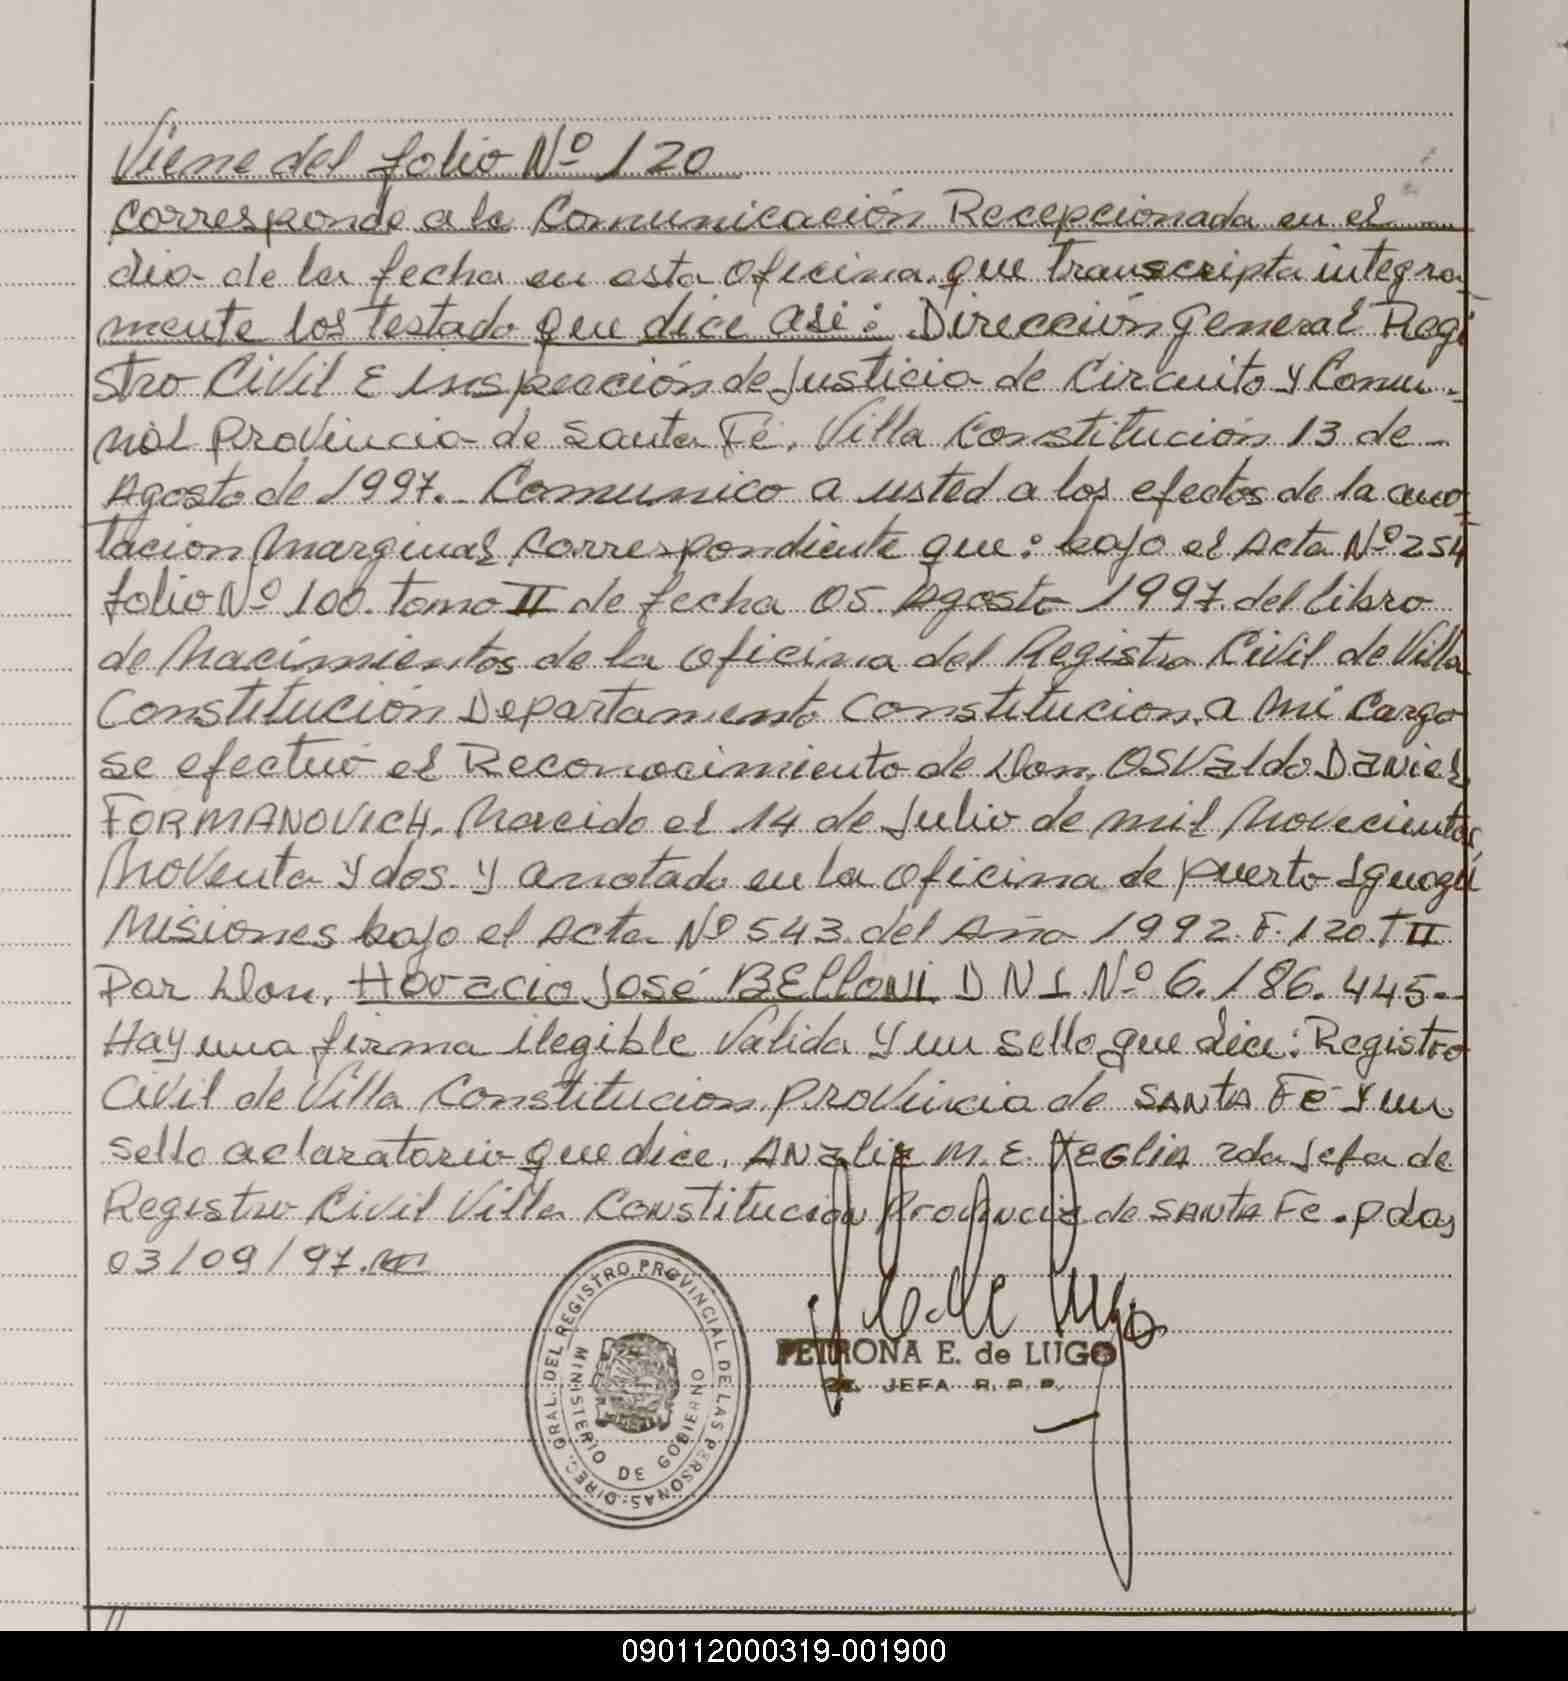 Viene del folio Nº 120
corresponde a la Comunicación Recepcionada en el
dia de la fecha en esta oficina que transcripta integra
mente los testado que dice asi: Dirección General Regi
stro Civil E inspección de Justicia de Circuito y Comu-
nal Provincia de Santa Fé. Villa Constitución 13 de
Agosto de 1997. Comunico a usted a los efectos de la ano-
tacion Marginal Correspondiente que: bajo el Acta Nº 254
folio Nº 100. tomo II de fecha 05 Agosto 1997 del libro
de Nacimientos de la oficina del Registro Civil de Villa
Constitución Departamento Constitucion, a mi Cargo
se efectuó el Reconocimiento de Don, OSValdo DaNiel
FORMANOVICH. Nacido el 14 de Julio de mil Novecientos
Noventa y dos y anotado en la oficina de Puerto Iguazú
Misiones bajo el Acta Nº 543 del Año 1992. F. 120. T II
Por Don, Horacio José BELLONI D N I Nº 6.186.445.-
Hay una firma ilegible Valida y un sello que dice: Registro
Civil de Villa Constitucion Provincia de SANTA FE y un
sello aclaratorio que dice, ANalia M. E. 2da Jefa de
Registro Civil Villa Constitución Provincia de SANTA FE. Pdas
03/09/97.
DIREC. GRAL. DEL REGISTRO PROVINCIAL DE LAS PERSONAS
MINISTERIO DE GOBIERNO
PETRONA E. de LUGO
2da. JEFA R. P. P.
090112000319-001900